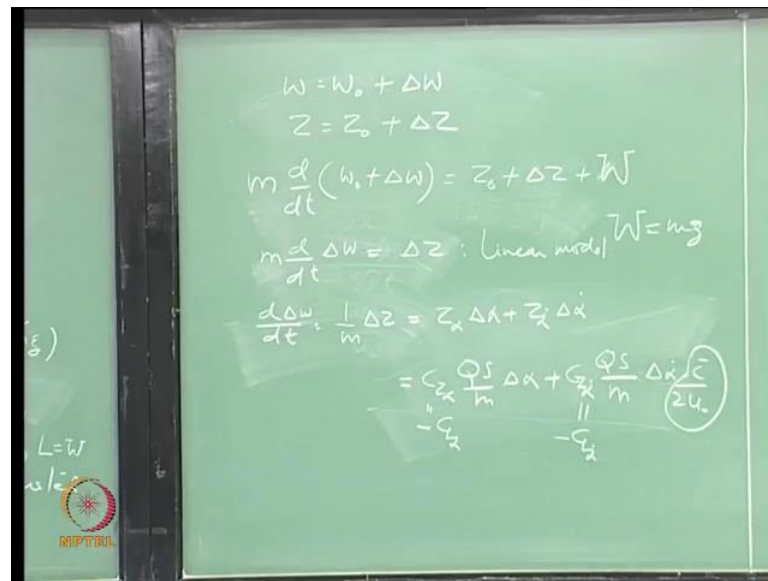 w = w₀ + Δw
Z = Z₀ + ΔZ
m d/dt (w₀ + Δw) = Z₀ + ΔZ + W
m d/dt Δw = ΔZ : Linear model W = mg
dΔw/dt = 1/m ΔZ = Z_α Δα + Z_α̇ Δα̇
= C_Zα QS/m Δα + C_Zα̇ QS/m Δα̇ c̄/2u₀
= -C_Lα = -C_Lα̇
ξ)
L=W
NPTEL